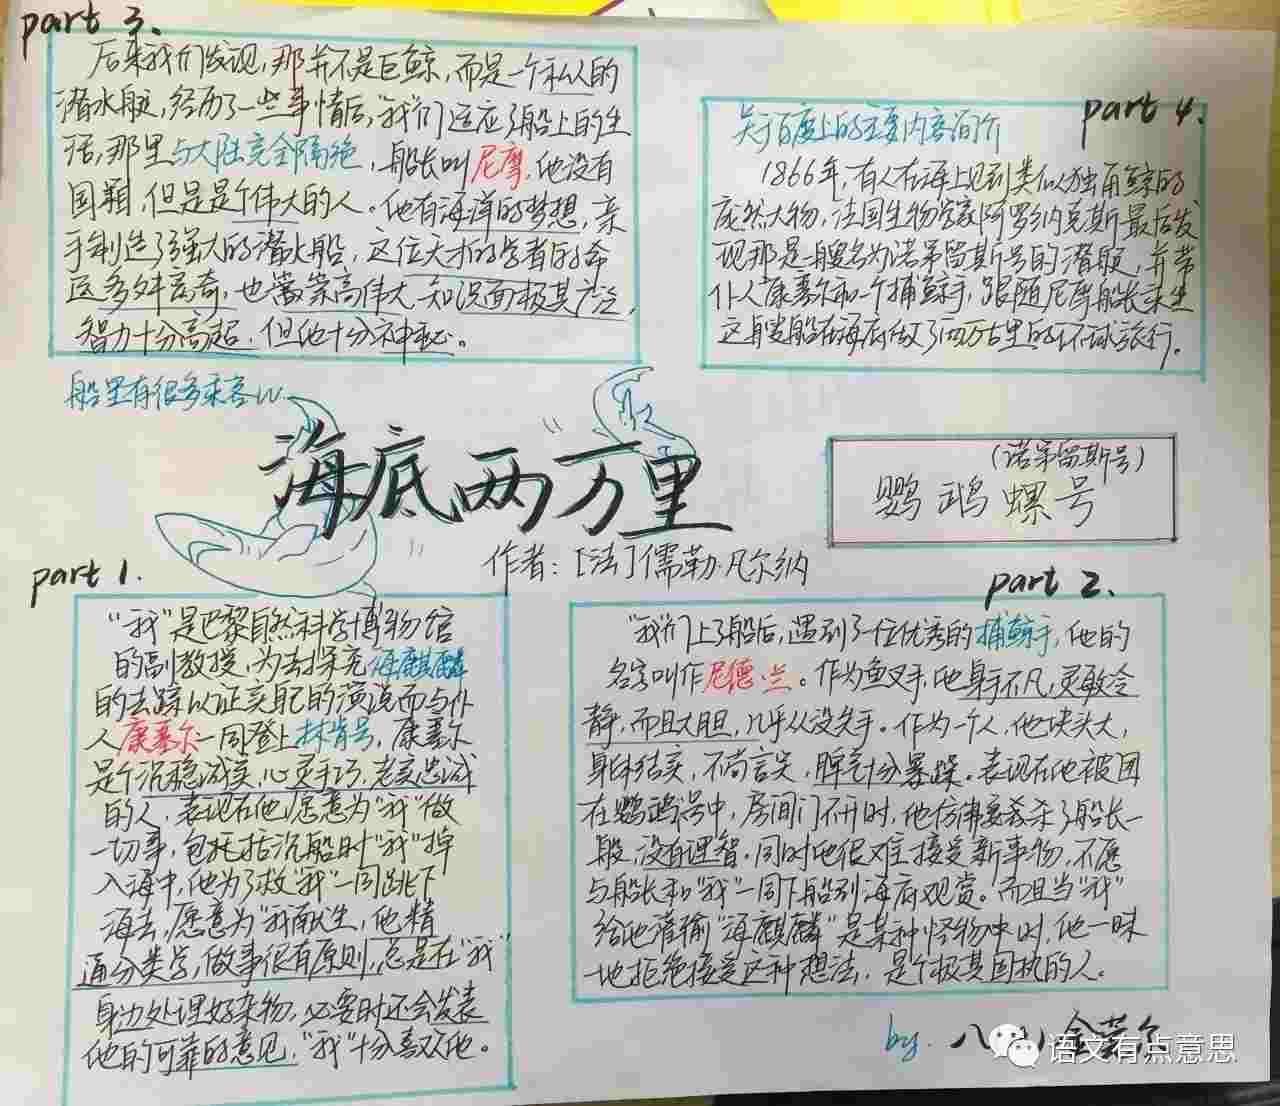 part 3.
后来我们发现,那并不是巨鲸,而是一个私人的
潜水艇,经历了一些事情后,"我"们适应了船上的生
活,那里与大陆完全隔绝,船长叫尼摩,他没有
国籍,但是是个伟大的人。他有海洋的梦想,亲
手制造了强大的潜水船,这位大才的学者的命
运多舛离奇,也崇高伟大,知识面极其广泛,
智力十分高超,但他十分神秘。
船里有很多乘客
part 4.
关于百度上的主要内容简介
1866年,有人在海上见到类似独角鲸的
庞然大物,法国生物学家阿罗纳克斯最后发
现那是一艘名为诺第留斯号的潜艇,并带
仆人康塞尔和一个捕鲸手,跟随尼摩船长乘坐
这艘船在海底做了两万古里的环球旅行。
海底两万里
作者:[法]儒勒·凡尔纳
(诺第留斯号)
鹦鹉螺号
part 1.
"我"是巴黎自然科学博物馆
的副教授,为去探究海麒麟
的去踪以证实自己的演说而与仆
人康塞尔一同登上林肯号,康塞尔
是个沉稳诚实,心灵手巧,老实忠诚
的人,表现在他愿意为"我"做
一切事,包括沉船时"我"掉
入海中,他为了救"我"一同跳下
海去,愿意为"我献生,他精
通分类学,做事很有原则,总是在"我"
身边处理好杂物,必要时还会发表
他的可靠的意见,"我"十分喜欢他。
part 2.
"我"们上了船后,遇到了一位优秀的捕鲸手,他的
名字叫作尼德·兰。作为鱼叉手,他身手不凡,灵敏冷
静,而且大胆,几乎从没失手。作为一个人,他块头大,
身体结实,不苟言笑,脾气十分暴躁。表现在他被困
在鹦鹉号中,房间门不开时,他仿佛要杀了船长一
般,没有理智。同时他很难接受新事物,不愿
与船长和"我"一同下船到海底观赏。而且当"我"
给他灌输"海麒麟"是某种怪物中时,他一味
地拒绝接受这种想法,是个极其固执的人。
by.
语文有点意思